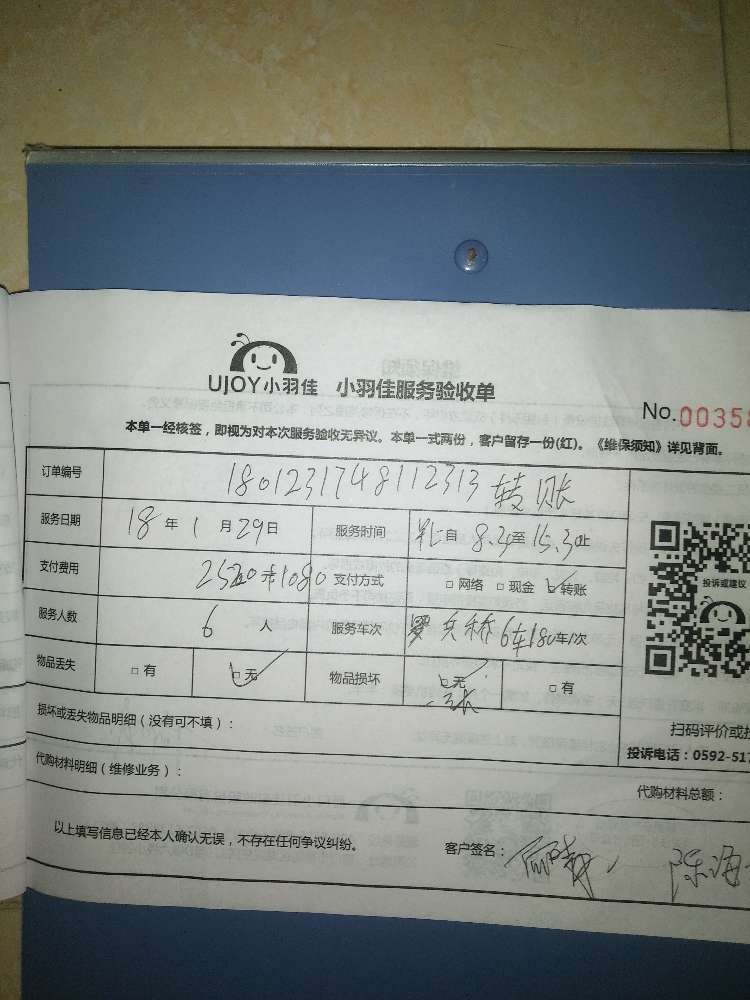 UJOY小羽佳 小羽佳服务验收单
No.0035
本单一经核签，即视为对本次服务验收无异议。本单一式两份，客户留存一份(红)。《维保须知》详见背面。
订单编号 1801231748112313 转账
服务日期 18 年 1 月 29 日 服务时间 自 8.30 至 15.30 止
支付费用 1080 支付方式 □ 网络 □ 现金 □ 转账
投诉或建议
服务人数 6 人 服务车次 罗兵桥 6车180 车/次
物品丢失 □ 有 □ 无 物品损坏 □ 无 □ 有
损坏或丢失物品明细（没有可不填）：
扫码评价或投
投诉电话：0592-517
代购材料明细（维修业务）：
代购材料总额：
以上填写信息已经本人确认无误，不存在任何争议纠纷。
客户签名： 陈海